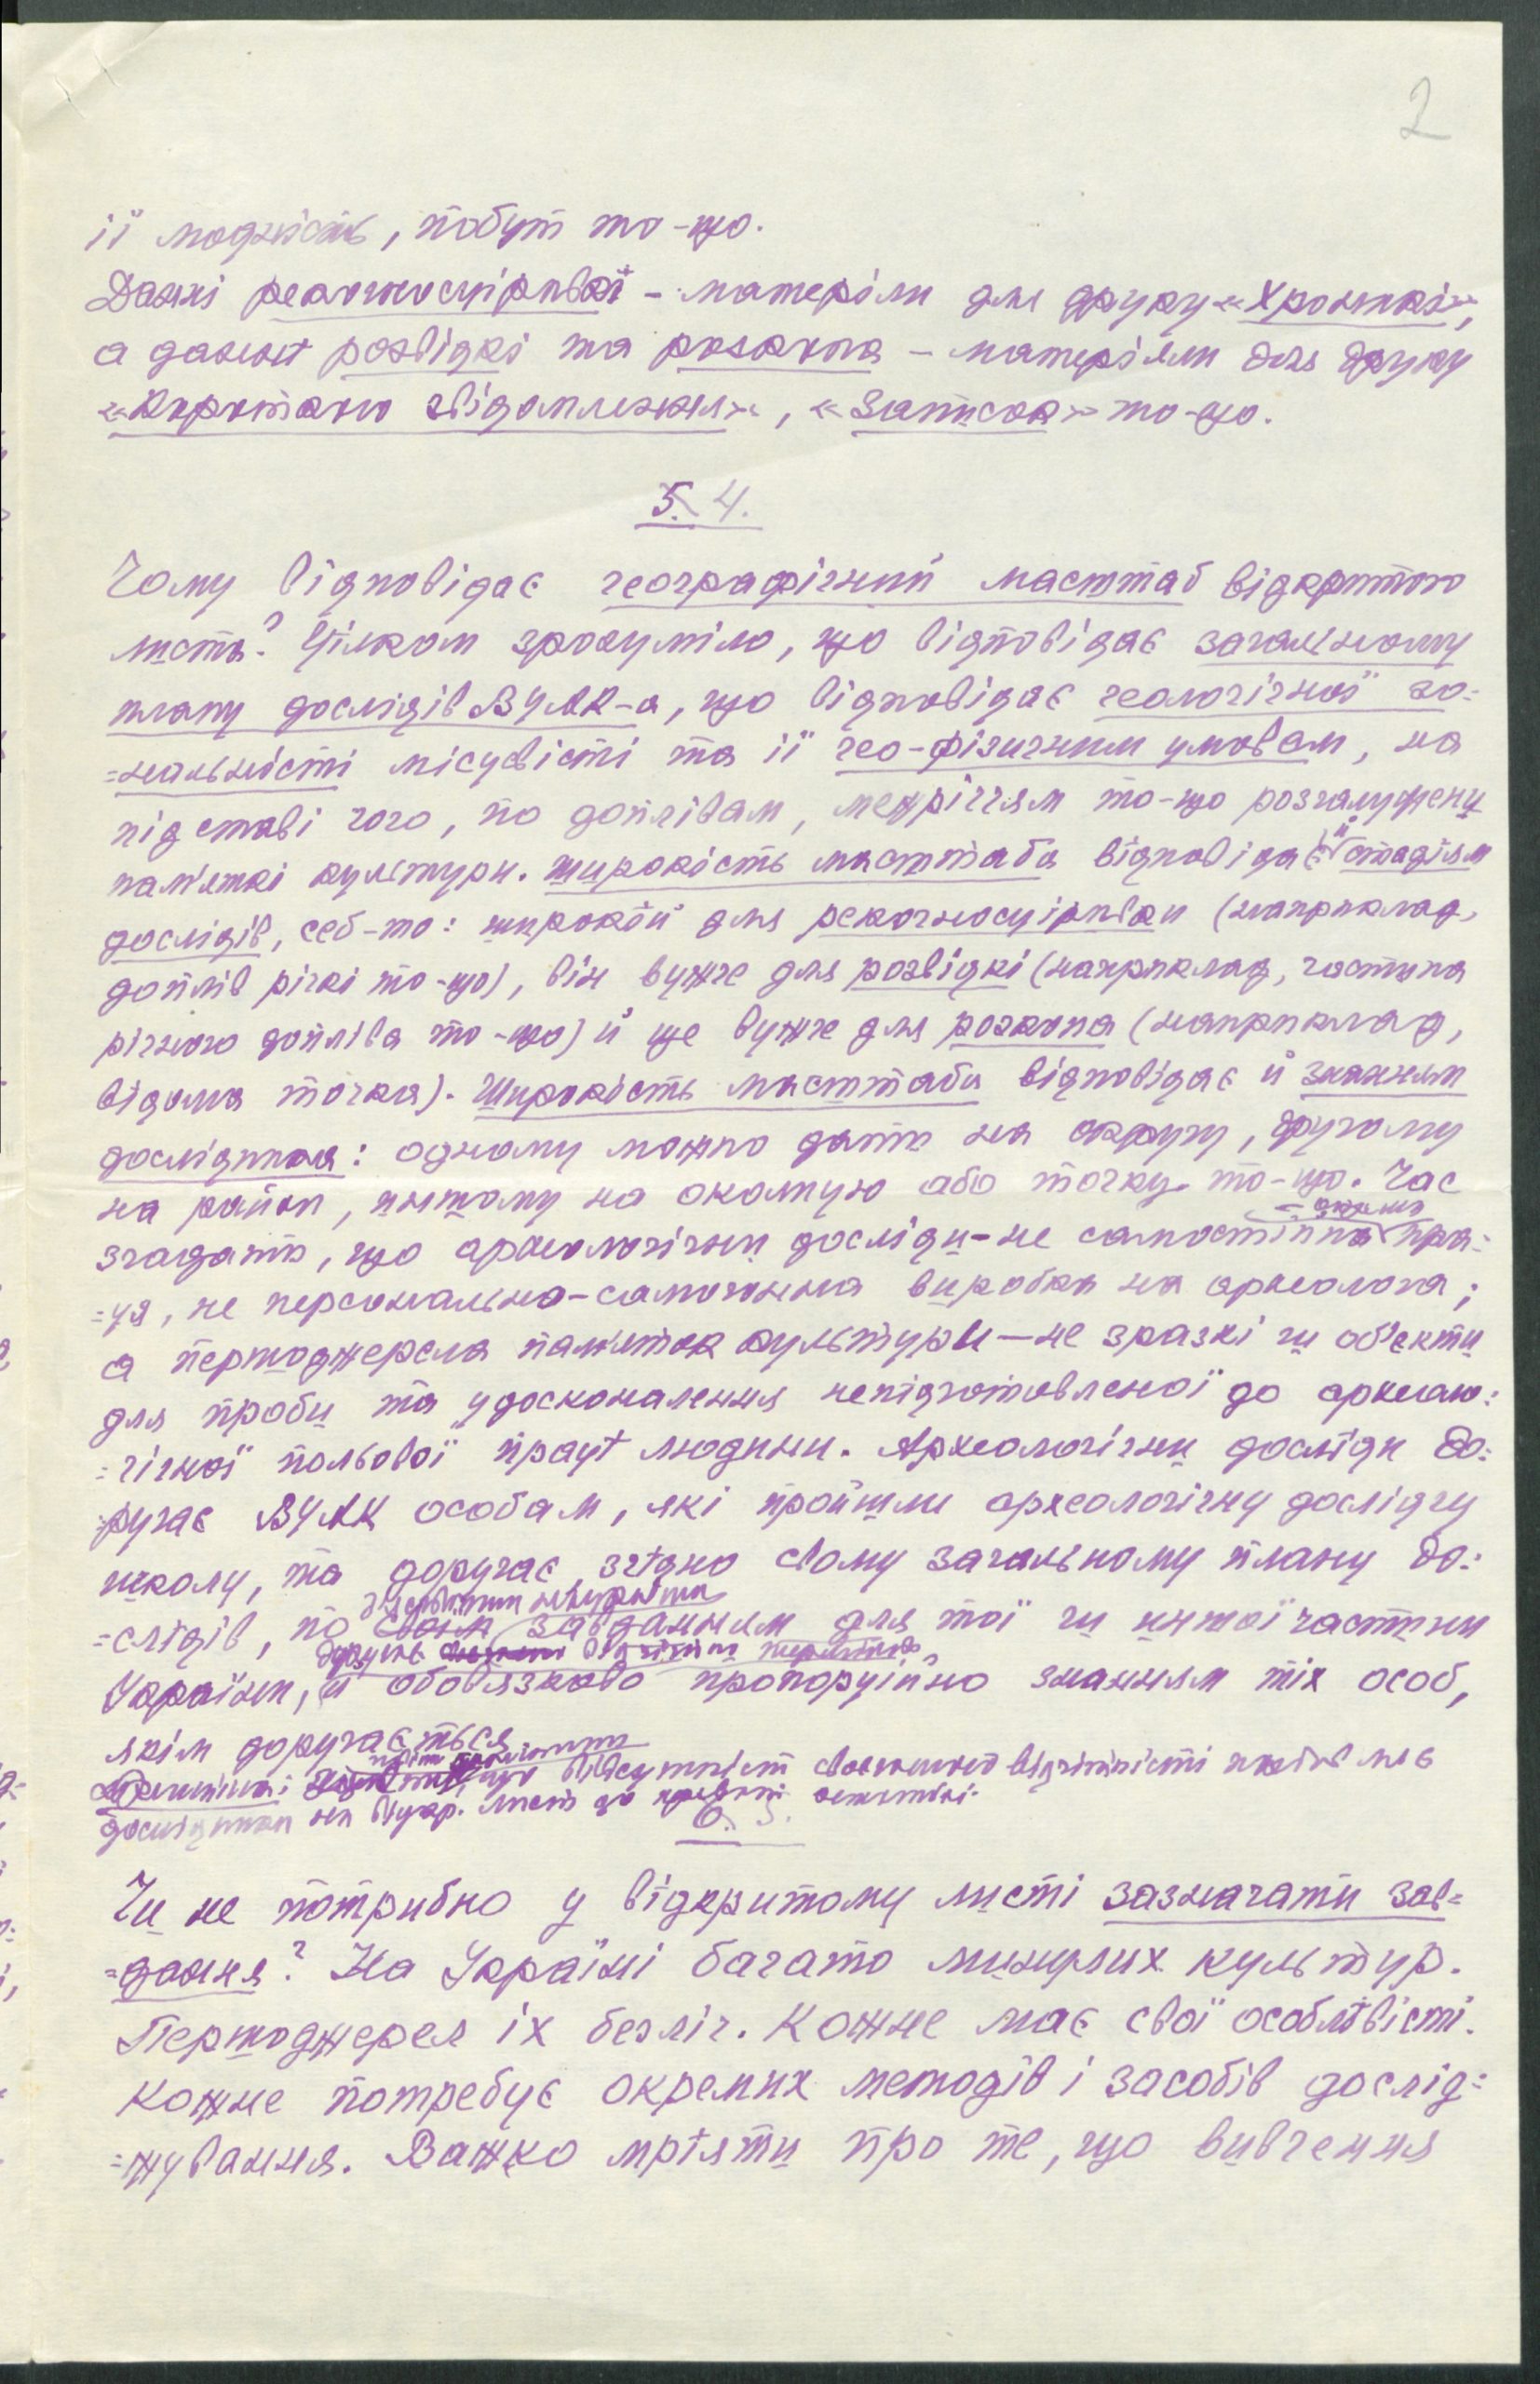 2
її модність, побут то-що.
Данні рекогносцірповкі - матеріли для друку «Хронікі»,
а данні розвідкі та роскопа - матеріяли для друку
«Короткого звідомлення», «Записок» то-що.
5. 4.
Чому відповідає географічний масштаб відкритого
листа? Цілком зрозуміло, що відповідає загальному
плану дослідів ВУАК-а, що відповідає геологічної зо=
=нальності місцевісті та її гео-фізичним умовам, на
підставі чого, по допливам, межріччям то-що розгалужени
пам'яткі культури. Широкість масштаба відповідає й стадіям
дослідів, себ-то: широкий для рекогносціровки (наприклад,
доплів річкі то-що), він вужче для розвідкі (наприклад, частина
річного допліва то-що) й ще вужче для роскопа (наприклад,
відома точка). Широкість масштаба відповідає й знанням
дослідника: одному можно дати на округу, другому
на район, иншому на околицю або точку то-що. Час
згадати, що археологічни досліди-не самостійна пра=
=ця, не персонально-самочинна виробка на археолога;
а першоджерела пам'яток культури—не зразкі чи об'єкти
для проби та удосконалення непідготовленої до археоло=
=гічної польової праці людини. Археологічни досліди до=
=ручає ВУАК особам, які пройшли археологічну дослідчу
школу, та доручає згідно свому загальному плану до=
=слідів, по завданням для тої чи иншої частини
України, й обов'язково пропорційно знанням тіх особ,
якім доручається
відсутність своєчасної відчітності позбавляє
дослідника на відкр. лист до
6. 5.
Чи не потрибно у відкритому листі зазначати зав=
=дання? На Україні багато минулих культур.
Першоджерел їх безліч. Кожне має свої особлівісті.
Кожне потребує окремих методів і засобів дослід=
=жування. Важко мріяти про те, що вивчення